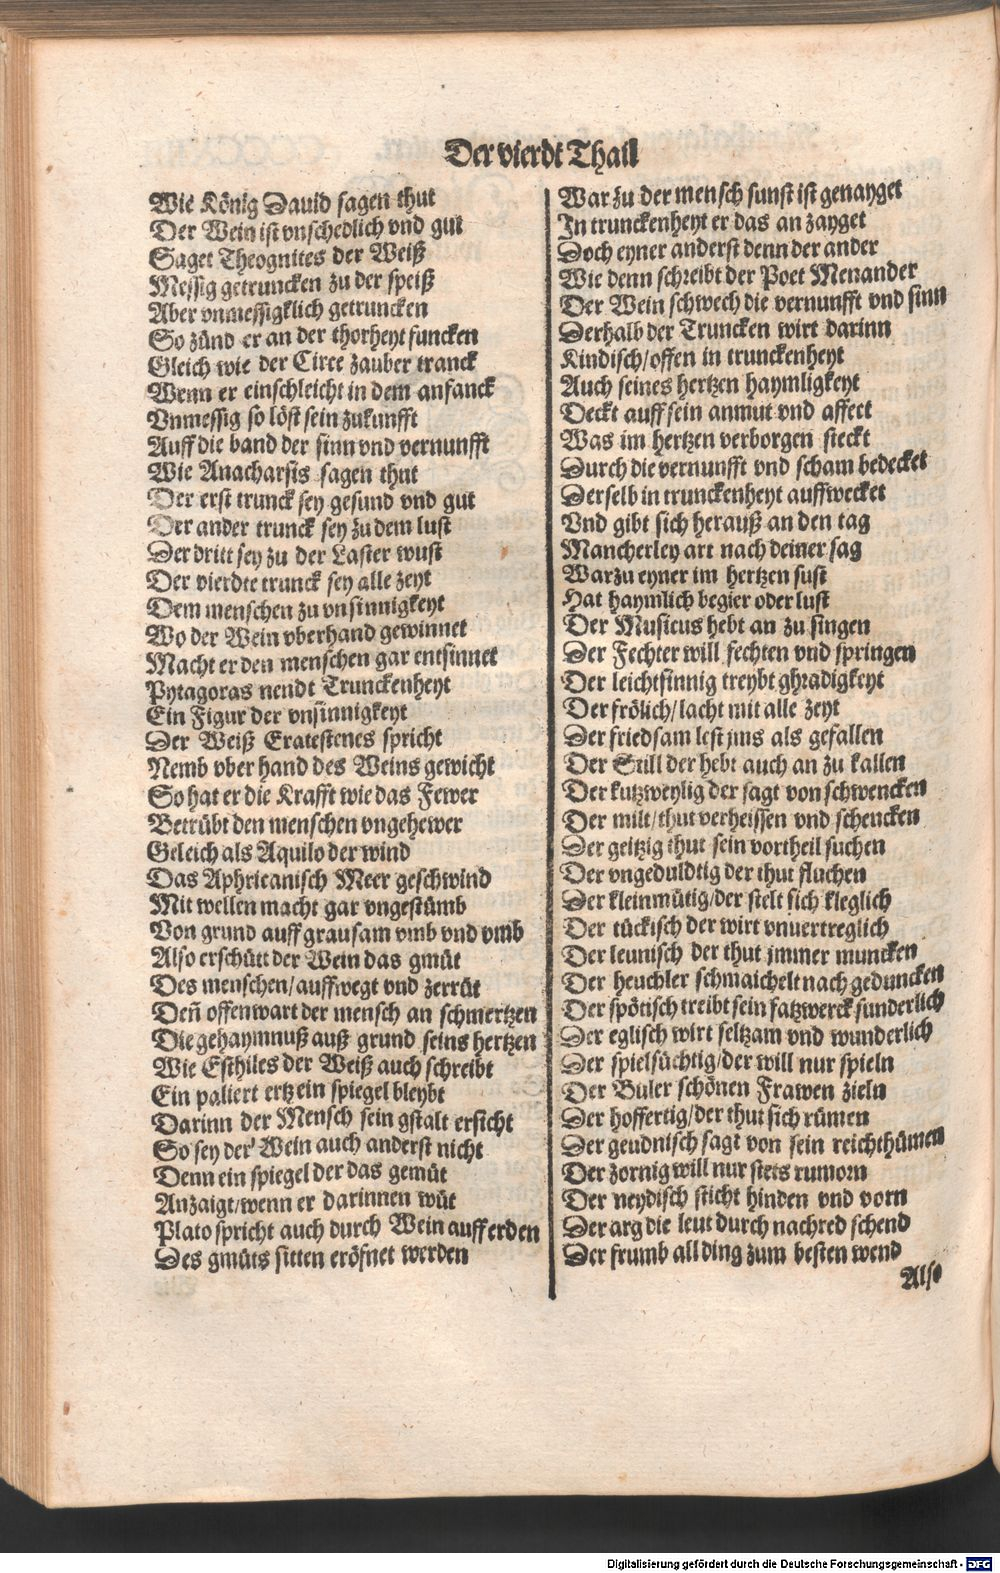 Der vierdt Thail
Wie König Dauid sagen thut
Der Wein ist vnschedlich vnd gut
Saget Theognites der Weiß
Messig getruncken zu der speiß
Aber vnmessigklich getruncken
So zünd er an der thorheyt funcken
Gleich wie der Circe zauber tranck
Wenn er einschleicht in dem anfanck
Vnmessig so löst sein zukunfft
Auff die band der sinn vnd vernunfft
Wie Anacharsis sagen thut
Der erst trunck sey gesund vnd gut
Der ander trunck sey zu dem lust
Der dritt sey zu der Laster wust
Der vierdte trunck sey alle zeyt
Dem menschen zu vnsinnigkeyt
Wo der Wein vberhand gewinnet
Macht er den menschen gar entsinnet
Pytagoras nendt Trunckenheyt
Ein Figur der vnsinnigkeyt
Der Weiß Eratestenes spricht
Nemb vber hand des Weins gewicht
So hat er die Krafft wie das Fewer
Betrübt den menschen vngehewer
Geleich als Aquilo der wind
Das Aphricanisch Meer geschwind
Mit wellen macht gar vngestümb
Von grund auff grausam vmb vnd vmb
Also erschütt der Wein das gmüt
Des menschen/auffwegt vnd zerrüt
Deñ offenwart der mensch an schmertzen
Die gehaymnuß auß grund seins hertzen
Wie Esthiles der Weiß auch schreibt
Ein paliert ertz ein spiegel bleybt
Darinn der Mensch sein gstalt ersicht
So sey der Wein auch anderst nicht
Denn ein spiegel der das gemüt
Anzaigt/wenn er darinnen wüt
Plato spricht auch durch Wein auff erden
Des gmüts sitten eröfnet werden
War zu der mensch sunst ist genayget
In trunckenheyt er das an zayget
Doch eyner anderst denn der ander
Wie denn schreibt der Poet Menander
Der Wein schwech die vernunfft vnd sinn
Derhalb der Truncken wirt darinn
Kindisch/offen in trunckenheyt
Auch seines hertzen haymligkeyt
Deckt auff sein anmut vnd affect
Was im hertzen verborgen steckt
Durch die vernunfft vnd scham bedecket
Derselb in trunckenheyt auffwecket
Vnd gibt sich herauß an den tag
Mancherley art nach deiner sag
Warzu eyner im hertzen sust
Hat haymlich begier oder lust
Der Musicus hebt an zu singen
Der Fechter will fechten vnd springen
Der leichtsinnig treybt ghradigkeyt
Der frölich/lacht mit alle zeyt
Der friedsam lest jms als gefallen
Der Still der hebt auch an zu kallen
Der kutzweylig der sagt von schwencken
Der milt/thut verheissen vnd schencken
Der geitzig thut sein vortheil suchen
Der vngeduldtig der thut fluchen
Der kleinmütig/der stelt sich kleglich
Der tückisch der wirt vnuertreglich
Der leunisch der thut jmmer muncken
Der heuchler schmaichelt nach geduncken
Der spötisch treibt sein fatzwerck sunderlich
Der eglisch wirt seltzam vnd wunderlich
Der spielsüchtig/der will nur spieln
Der Buler schönen Frawen zieln
Der hoffertig/der thut sich rümen
Der geudnisch sagt von sein reichthümen
Der zornig will nur stets rumorn
Der neydisch sticht hinden vnd vorn
Der arg die leut durch nachred schend
Der frumb all ding zum besten wend
Also
Digitalisierung gefördert durch die Deutsche Forschungsgemeinschaft - DFG